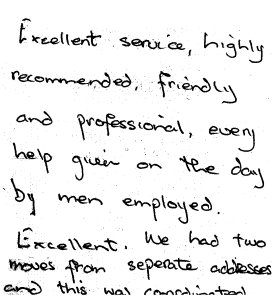 Excellent service, highly
recommended, friendly
and professional, every
help given on the day
by men employed.
Excellent. We had two
moves from seperate addresses
and this was coordinated